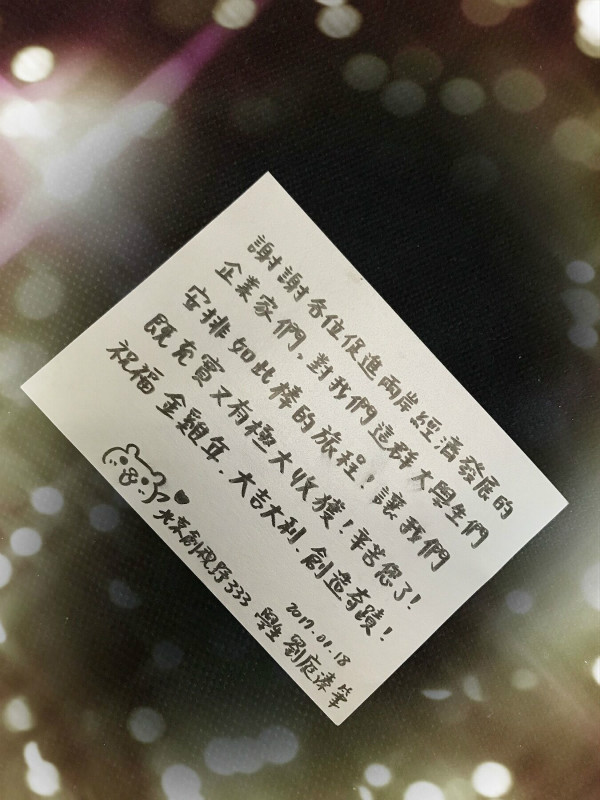 謝謝各位促進兩岸經濟發展的
企業家們,對我們這群大學生們
安排如此棒的旅程!讓我們
既充實又有極大收獲!辛苦您了!
祝福 金雞年.大吉大利.創造奇蹟!
北京創視野333
2017.01.18
學生 劉庭 筆